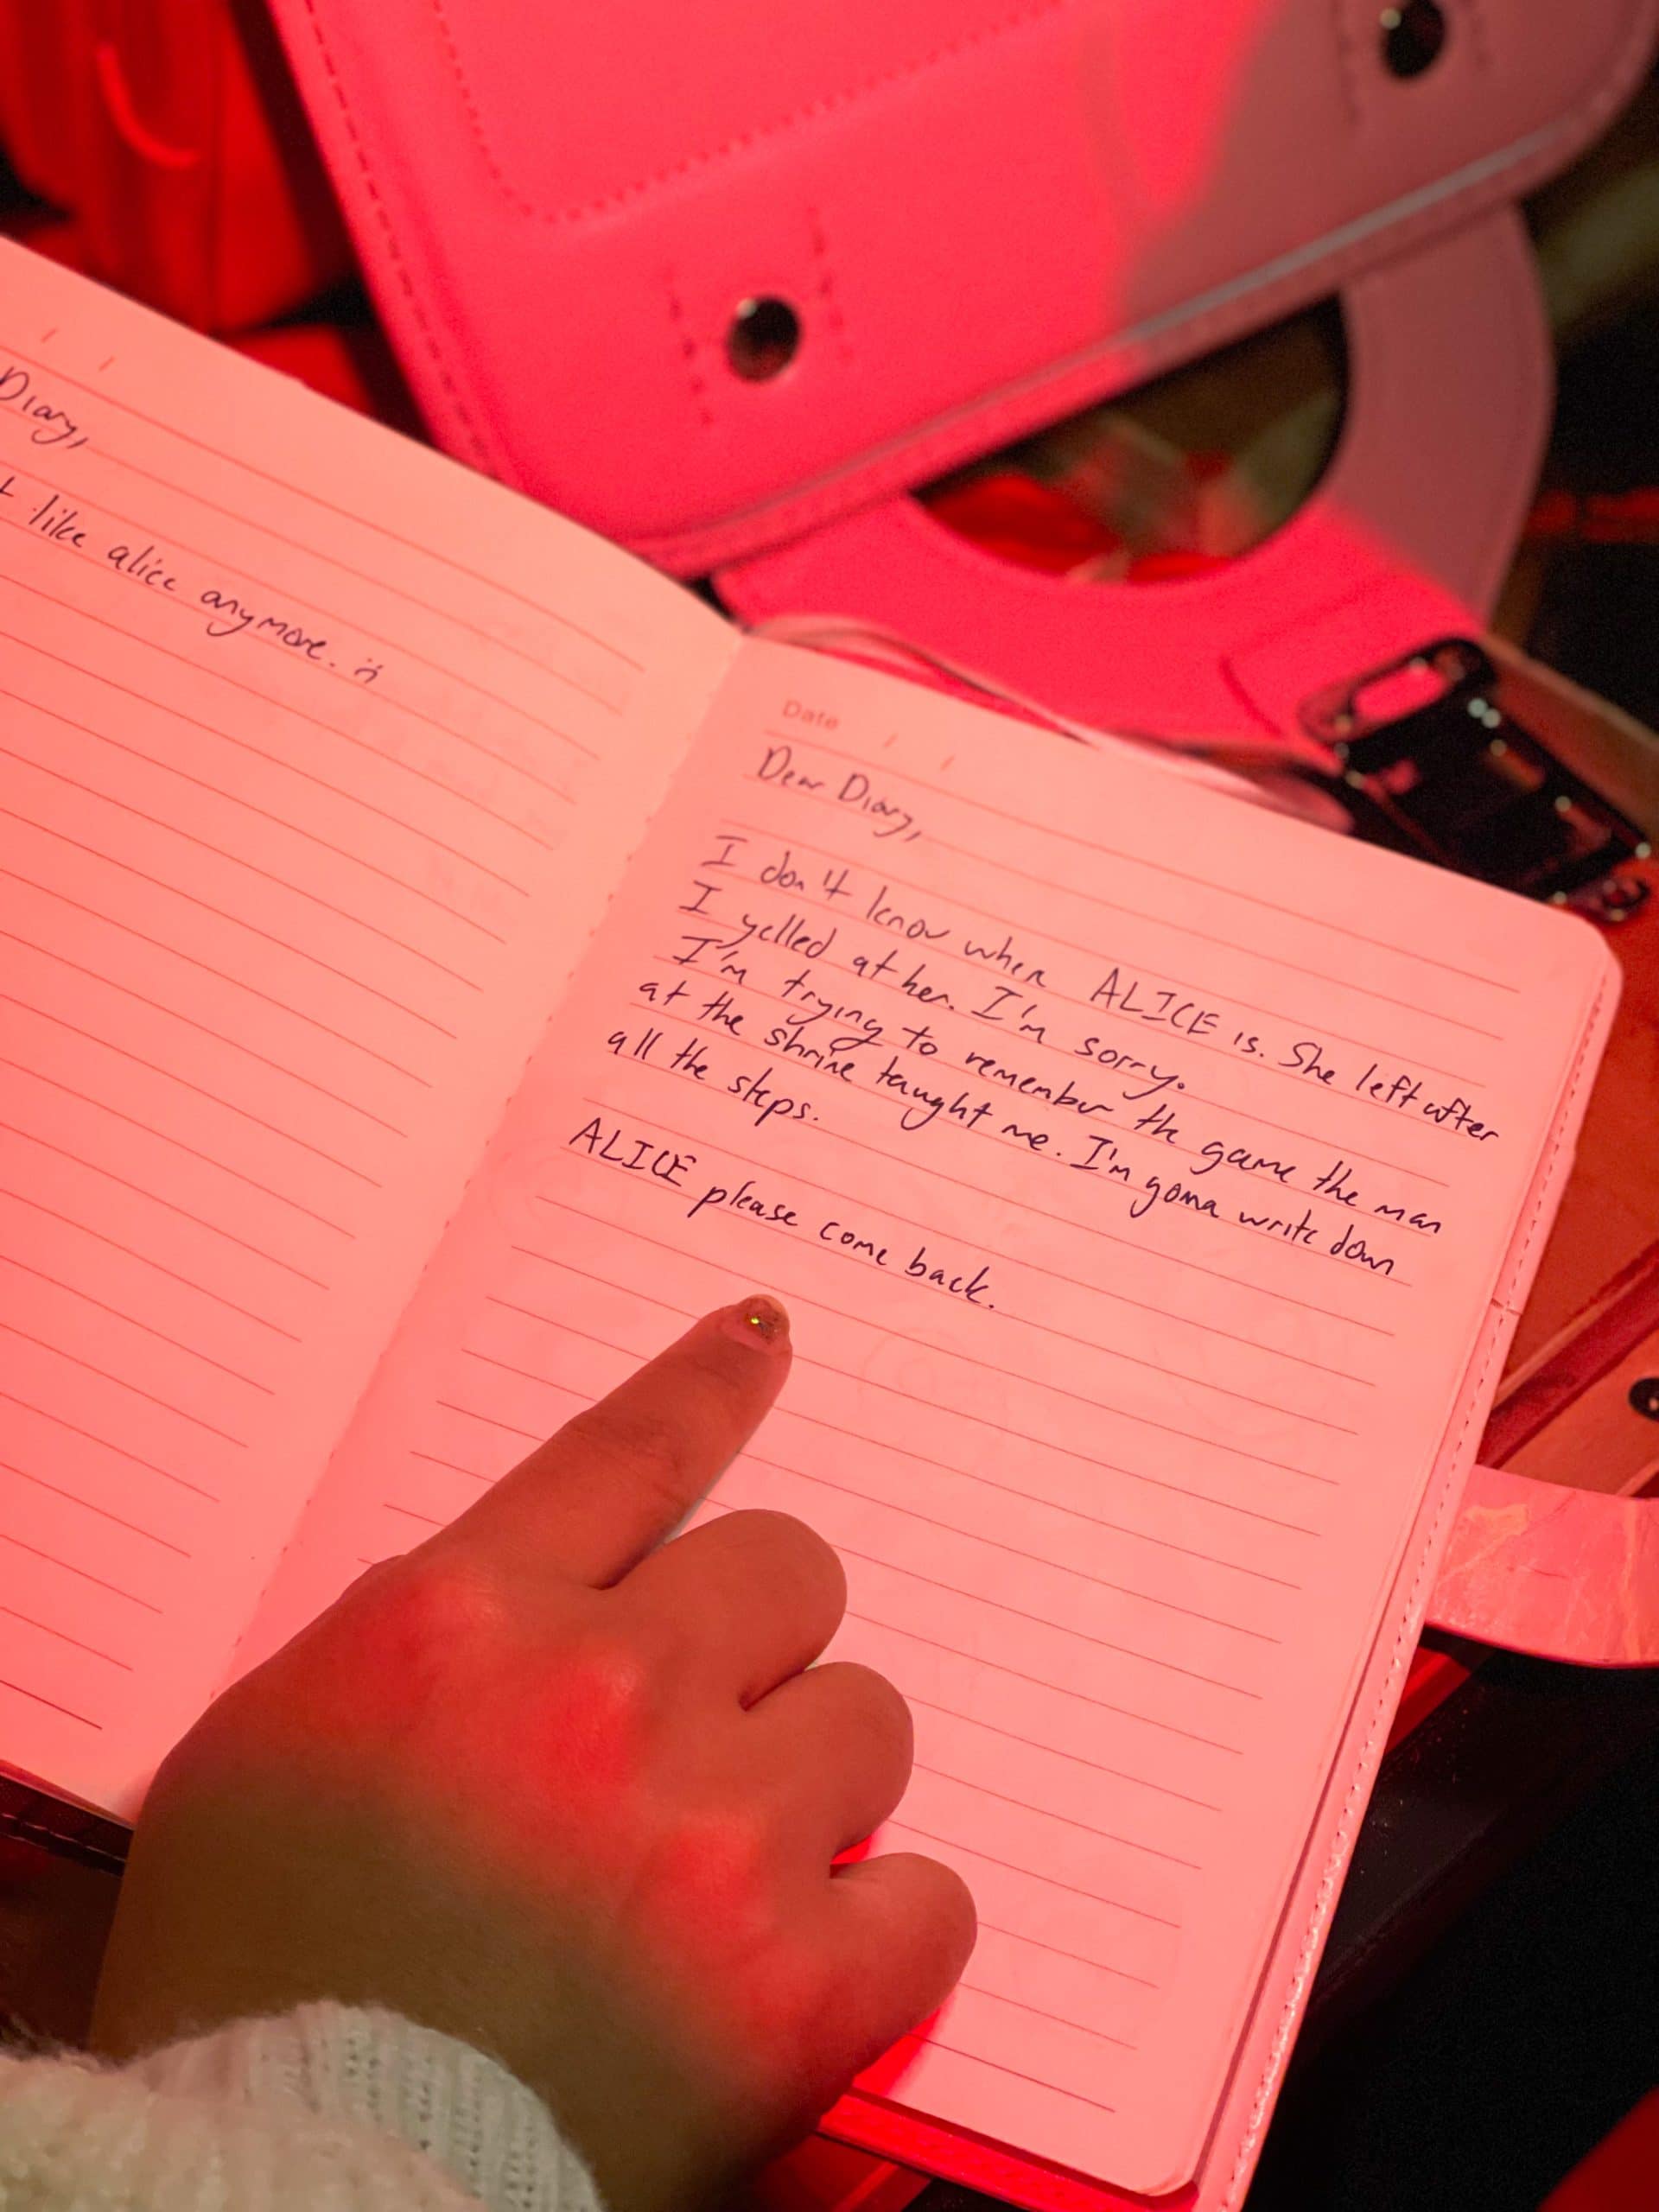 Diary,
like alice anymore. :(
Date / /
Dear Diary,
I don't know when ALICE is. She left after
I yelled at her. I'm sorry.
I'm trying to remember the game the man
at the shrine taught me. I'm gonna write down
all the steps.
ALICE please come back.